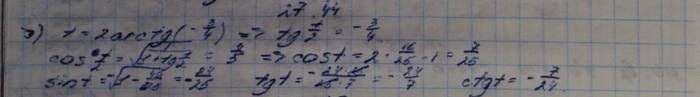 27 44
t = 2arctg(-3/4) => tg t/2 = -3/4
cos t/2 = √(1/(1+tg t/2)) = 4/5 => cos t = 2 · 16/25 - 1 = 7/25
sin t = -√(1 - 49/625) = -24/25 tg t = -24/25 · 25/7 = -24/7 ctg t = -7/24